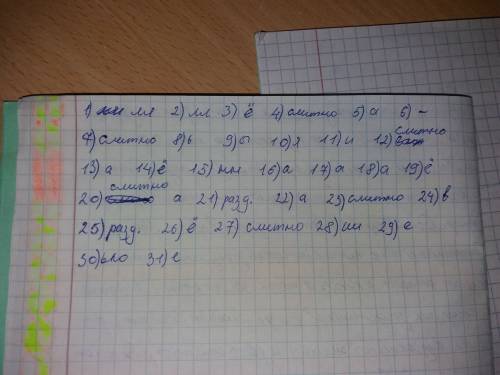 1) лл 2) лл 3) ё 4) слитно 5) а 6) –
7) слитно 8) ь 9) о 10) я 11) и 12) слитно
13) а 14) ё 15) нн 16) а 17) а 18) а 19) ё
20) слитно а 21) разд. 22) а 23) слитно 24) в
25) разд. 26) ё 27) слитно 28) ии 29) е
30) 31) е